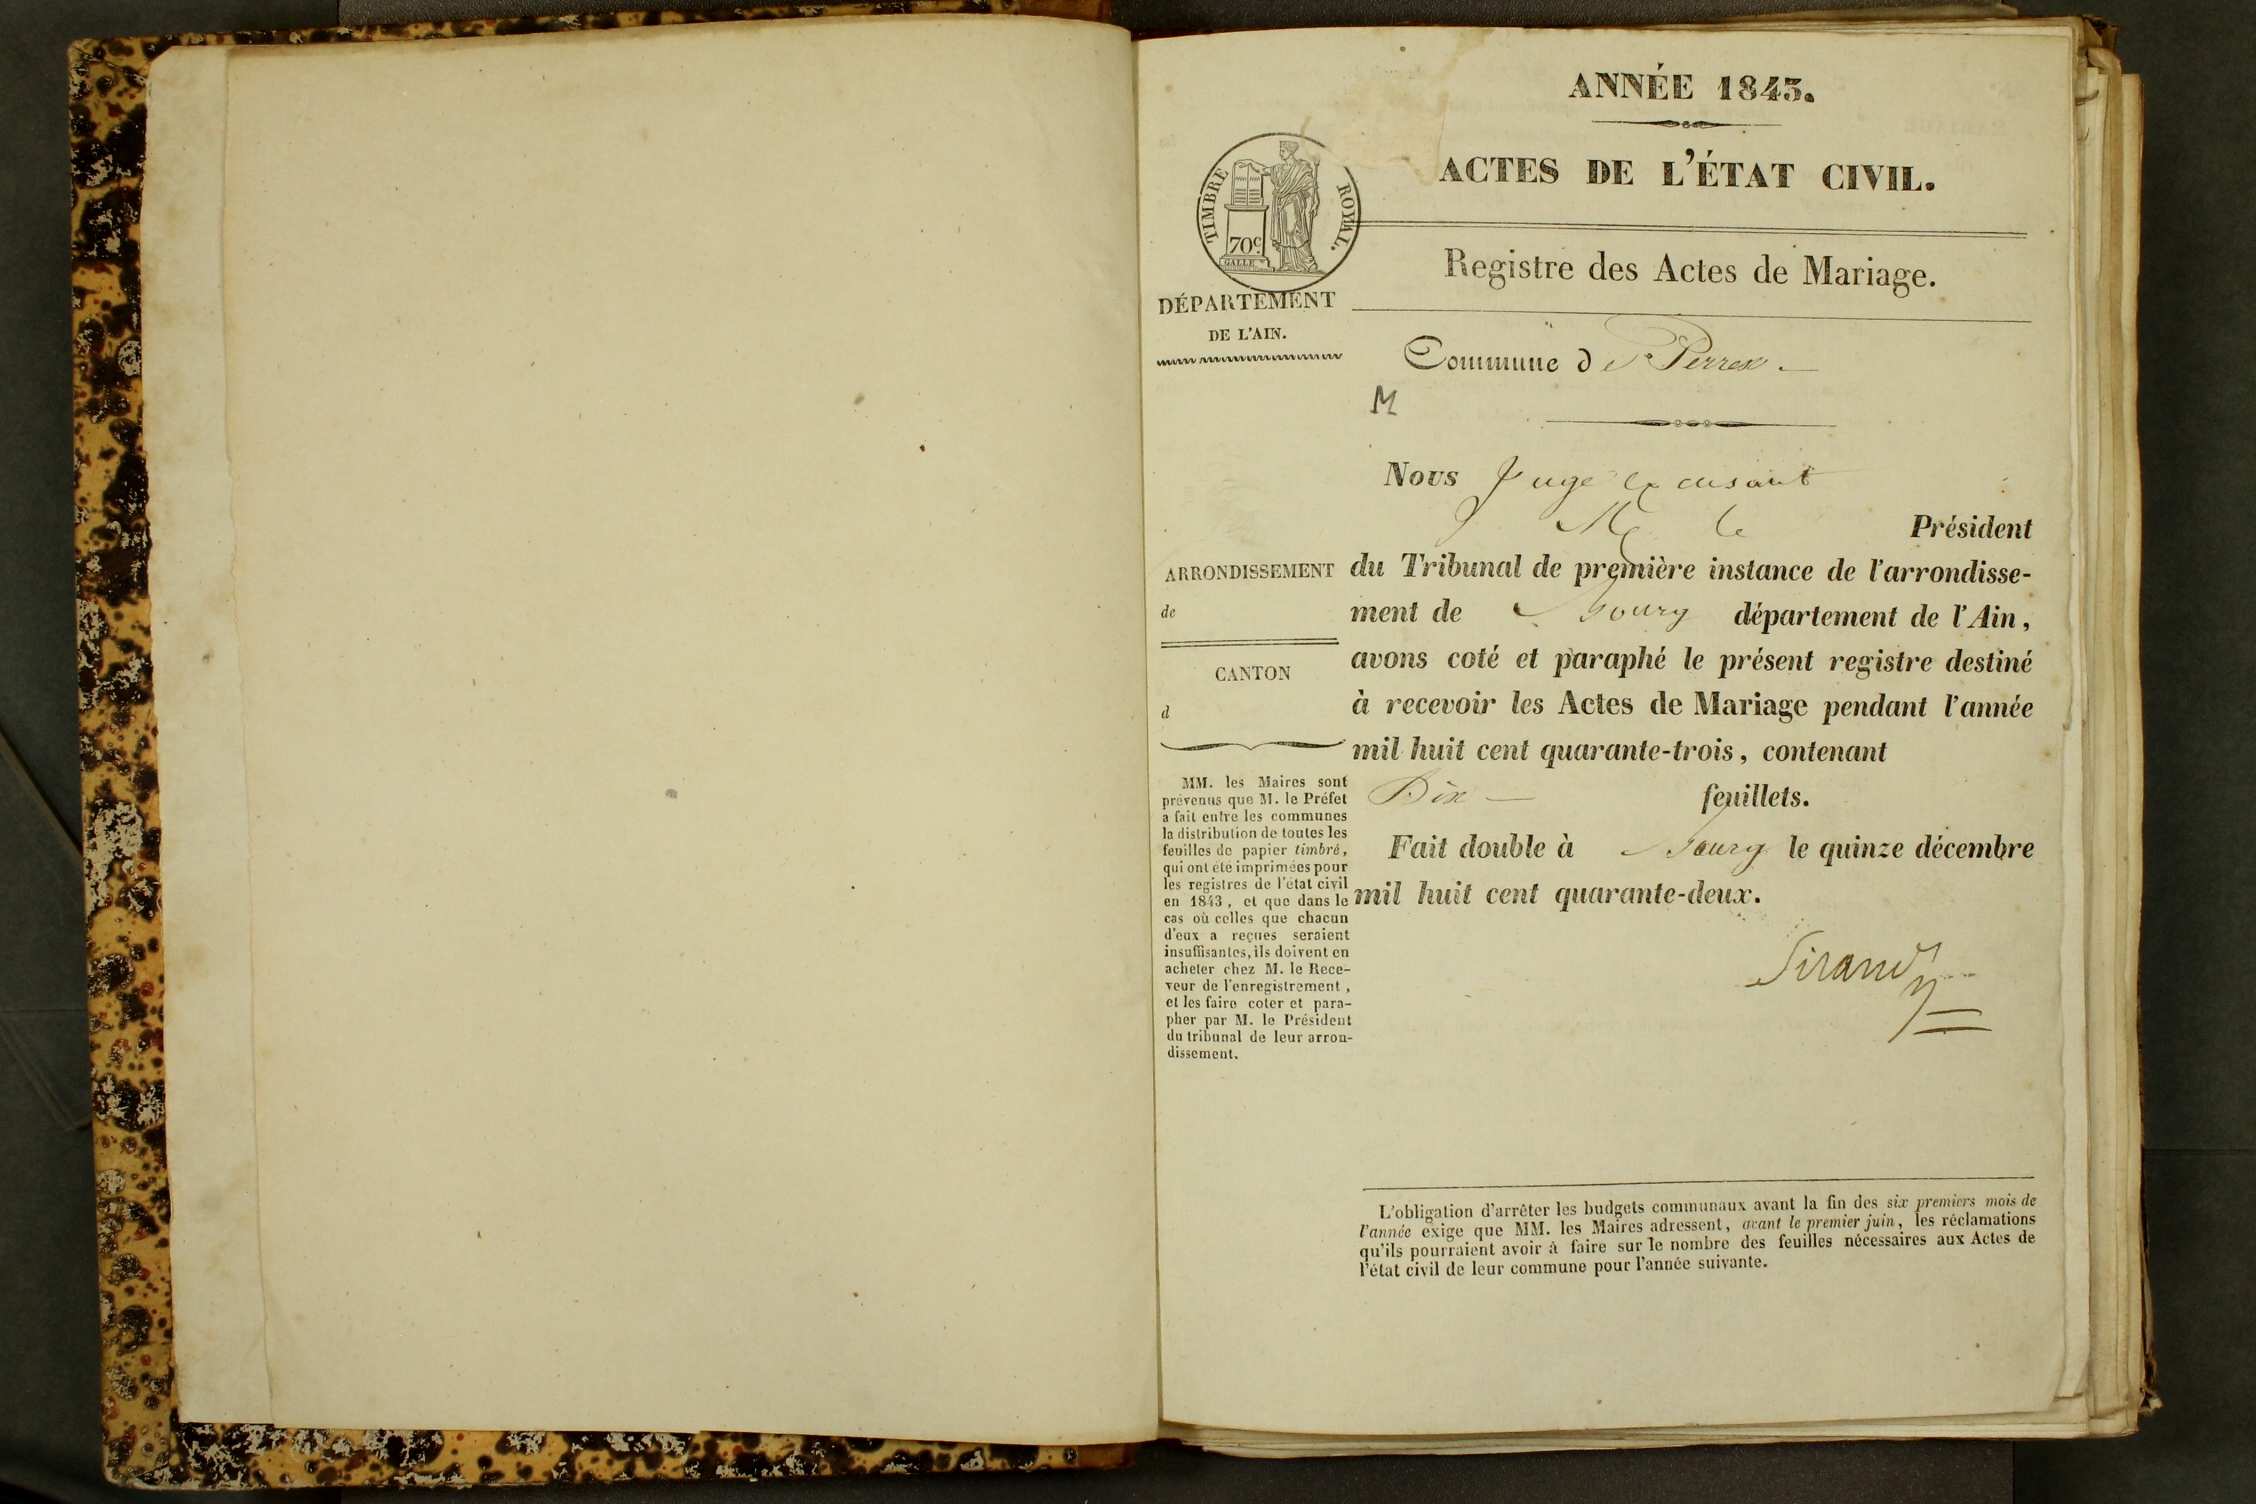 ANNÉE 1843.
ACTES DE L'ÉTAT CIVIL.
TIMBRE ROYAL.
70c
GALLE
Registre des Actes de Mariage.
DÉPARTEMENT
DE L'AIN.
Commune de Perrex.
M
Nous Juge excusant
M. le Président
du Tribunal de première instance de l'arrondisse-
ment de Bourg département de l'Ain,
avons coté et paraphé le présent registre destiné
à recevoir les Actes de Mariage pendant l'année
mil huit cent quarante-trois, contenant
Dix — feuillets.
Fait double à Bourg le quinze décembre
mil huit cent quarante-deux.
Sirand
ARRONDISSEMENT
de
CANTON
d
MM. les Maires sont
prévenus que M. le Préfet
a fait entre les communes
la distribution de toutes les
feuilles de papier timbré,
qui ont été imprimées pour
les registres de l'état civil
en 1843, et que dans le
cas où celles que chacun
d'eux a reçues seraient
insuffisantes, ils doivent en
acheter chez M. le Rece-
veur de l'enregistrement,
et les faire coter et para-
pher par M. le Président
du tribunal de leur arron-
dissement.
L'obligation d'arrêter les budgets communaux avant la fin des six premiers mois de
l'année exige que MM. les Maires adressent, avant le premier juin, les réclamations
qu'ils pourraient avoir à faire sur le nombre des feuilles nécessaires aux Actes de
l'état civil de leur commune pour l'année suivante.